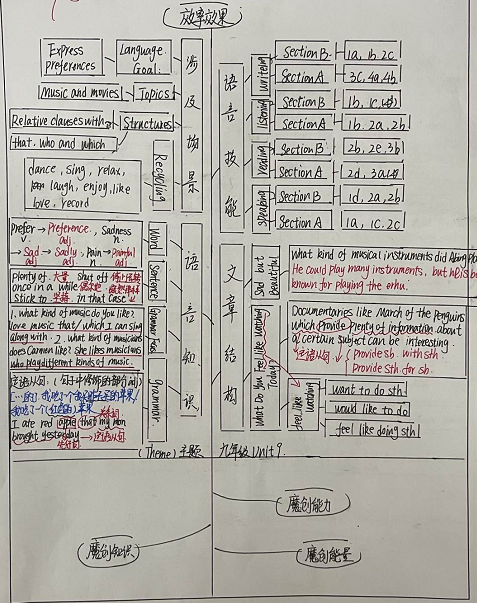 效率效果
Express preferences
Language Goal:
Music and movies
Topics
Relative clauses with
that. who and which
Structures
dance, sing, relax,
laugh, enjoy, like
love, record
Recycling
涉及场景
Prefer → Preference, Sadness
v. n. n.
→ Sad → Sadly, Pain → Painful
adj. n adj.
Word
plenty of. 大量 shut off
once in a while 偶尔地
stick to 坚持. in that case
Sentence
1. what kind of music do you like?
I love music that/which I can sing
along with. 2. what kind of musicians
does Carmen like? she likes musicians
who play different kinds of music.
Grammar Focus
定语从句:
I ate red apple that my mom
bought yesterday → 定语从句
先行词
grammar
语言知识
语言技能
writing
Section B
1a, 1b, 2c
Section A
3c, 4a, 4b
listening
Section B
1b, 1c,
Section A
1b, 2a, 2b
reading
Section B
2b, 2e, 3b
Section A
2d, 3a
speaking
Section B
1d, 2a, 2b
Section A
1a, 1c, 2c
文章结构
Sad but Beautiful
what kind of musical instruments did Abing play
He could play many instruments, but he is be
known for playing the erhu.
What Do You Feel Like Watching Today?
Documentaries like March of the Penguins
which Provide Plenty of information about
a certain subject can be interesting.
定语从句
Provide sb. with sth
Provide sth for sb.
feel like watching
want to do sth
would like to do
feel like doing sth
(Theme) 主题 九年级 Unit 9.
魔创能力
魔创知识
魔创能量